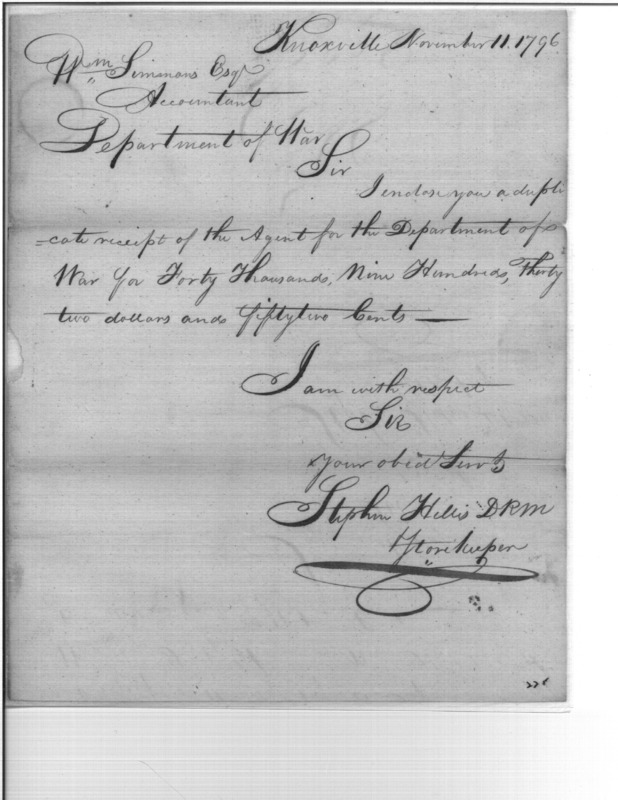 Knoxville November 11. 1796
Wm Simmons Esqr
Accountant
Department of War
Sir
I enclose you a dupli
=cate receipt of the Agent for the Department of
War for Forty Thousand, Nine Hundred, Thirty
two dollars and fifty two Cents —
I am with respect
Sir
your obed Servt
Stephen Hillis DQM
& Storekeeper